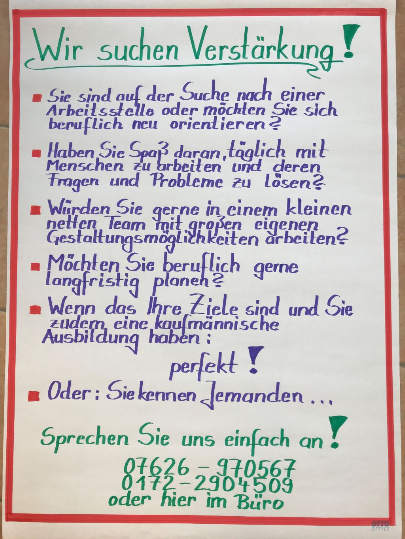 Wir suchen Verstärkung!
Sie sind auf der Suche nach einer
Arbeitsstelle oder möchten Sie sich
beruflich neu orientieren?
Haben Sie Spaß daran, täglich mit
Menschen zu arbeiten und deren
Fragen und Probleme zu lösen?
Würden Sie gerne in einem kleinen
netten Team mit großen eigenen
Gestaltungsmöglichkeiten arbeiten?
Möchten Sie beruflich gerne
langfristig planen?
Wenn das Ihre Ziele sind und Sie
zudem eine kaufmännische
Ausbildung haben:
perfekt!
Oder: Sie kennen Jemanden...
Sprechen Sie uns einfach an!
07626-970567
0172-2904509
oder hier im Büro